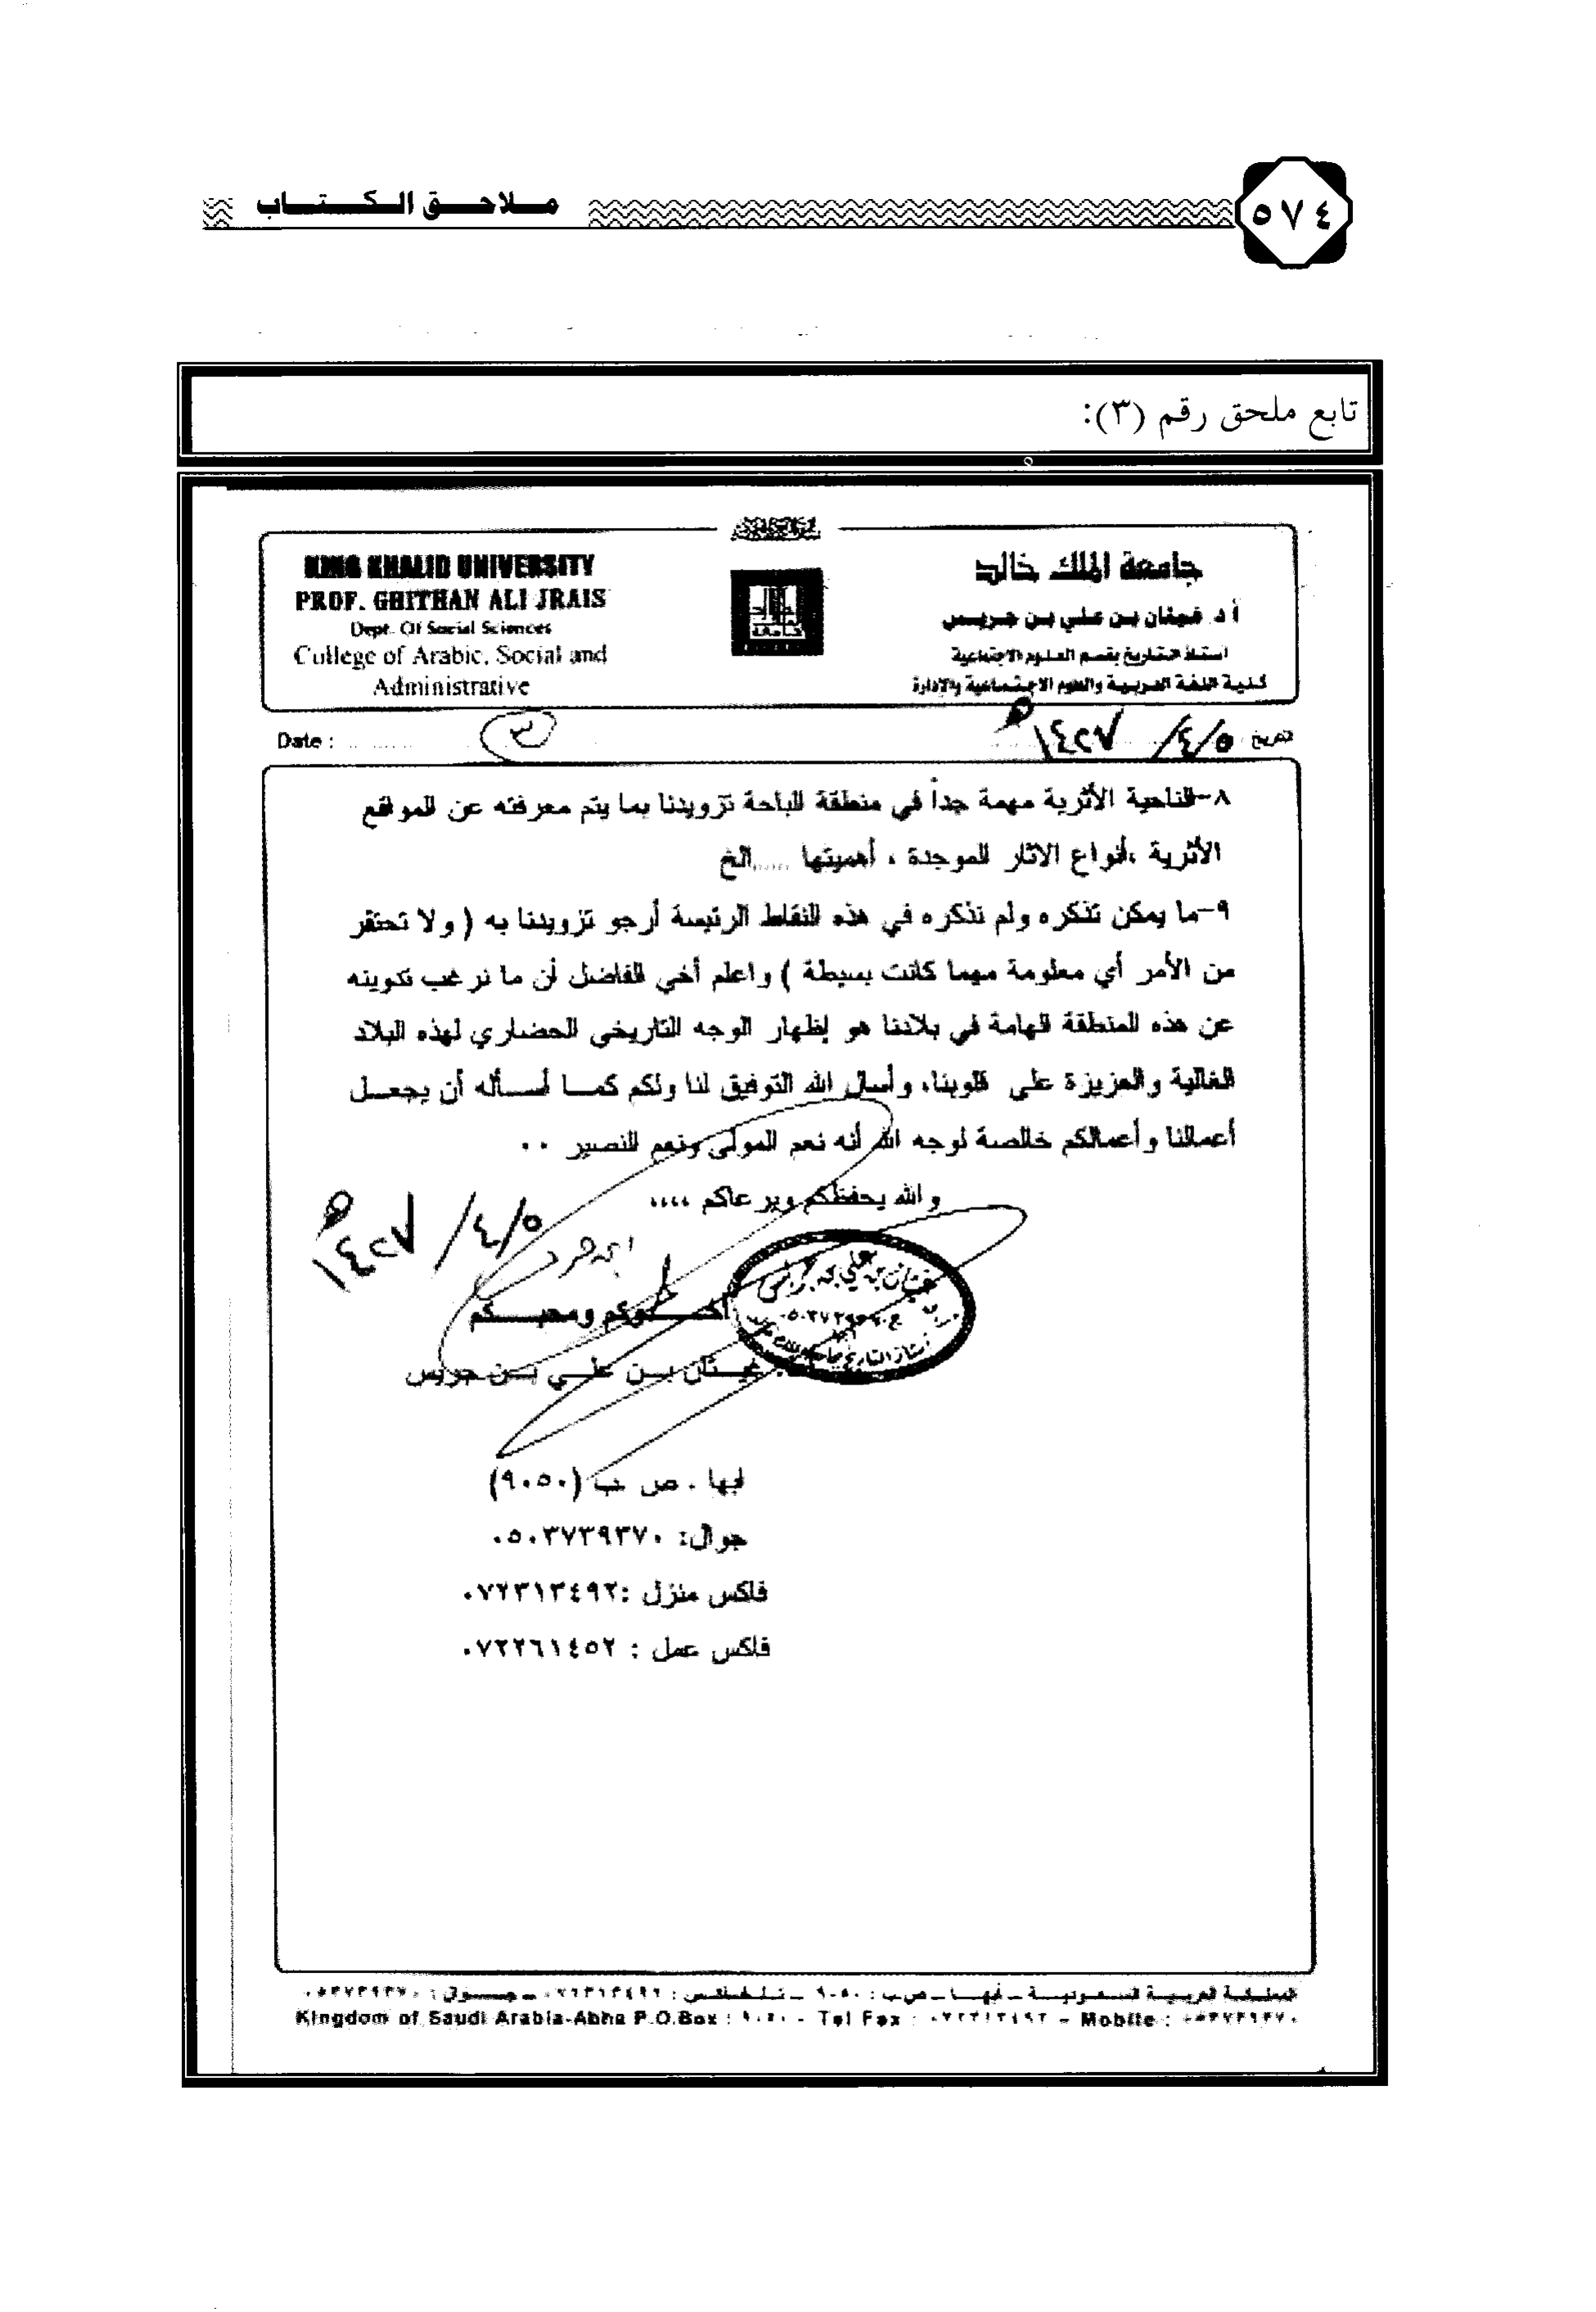 ٥٧٤
ملاحق الكتاب
تابع ملحق رقم (٣):
جامعة الملك خالد
أ د. غيثان بن علي بن جريس
استاذ التاريخ بقسم العلوم الاجتماعية
كلية اللغة العربية والعلوم الاجتماعية والإدارة
KING KHALID UNIVERSITY
PROF. GHITHAN ALI JRAIS
Dept. Of Social Sciences
College of Arabic, Social and
Administrative
تاريخ ٥/٤/١٤٢٧هـ
Date : ............
٣
٨-الناحية الأثرية مهمة جداً في منطقة الباحة تزويدنا بما يتم معرفته عن المواقع
الأثرية ،أنواع الاثار الموجدة ، أهميتها .....الخ
٩-ما يمكن تذكره ولم نذكره في هذه النقاط الرئيسة أرجو تزويدنا به ( ولا تحتقر
من الأمر أي معلومة مهما كانت بسيطة ) واعلم أخي الفاضل أن ما نرغب تدوينه
عن هذه المنطقة الهامة في بلادنا هو إظهار الوجه التاريخي الحضاري لهذه البلاد
الغالية والعزيزة على قلوبنا، وأسال الله التوفيق لنا ولكم كما أسأله أن يجعل
أعمالنا وأعمالكم خالصة لوجه الله أنه نعم المولى ونعم النصير ..
والله يحفظكم ويرعاكم ،،،،
٥/٤/١٤٢٧هـ
أخوكم ومحبكم
غيثان بن علي بن جريس
ابها . ص ب (٩٠٥٠)
جوال: ٠٥٠٣٧٣٩٣٧٠
فاكس منزل :٠٧٢٣١٣٤٩٢
فاكس عمل : ٠٧٢٢٦١٤٥٢
المملكة العربية السعودية – أبها – ص ب : ٩٠٥٠ – تلفاكس : ٠٧٢٣١٣٤٩٢ – جوال :
Kingdom of Saudi Arabia-Abha P.O.Box : ٩٠٥٠ - Tel Fax : ٠٧٢٣١٣٤٩٢ – Mobile :